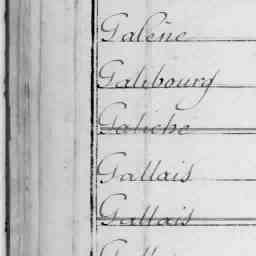 Galène
Galibourg
Galiche
Gallais
Gallais